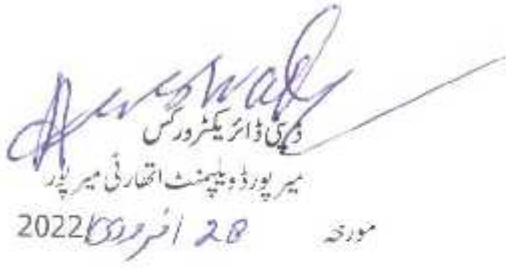 ڈپٹی ڈائریکٹر ورکس
میرپور ڈویلپمنٹ اتھارٹی میرپور
مورخہ 28/فروری/2022